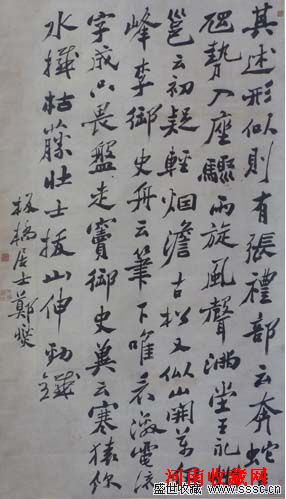 其述形似則有張禮部云奔蛇
虺勢入座驟雨旋風聲滿堂王永
邕云初疑輕烟澹古松又似山開萬
峰李御史舟云筆下唯看激電流
字成只畏盤走竇御史冀云寒猿飲
水撼枯藤壯士拔山伸勁鐵
板橋居士鄭燮
河南收藏网
盛世收藏 www.sssc.cn